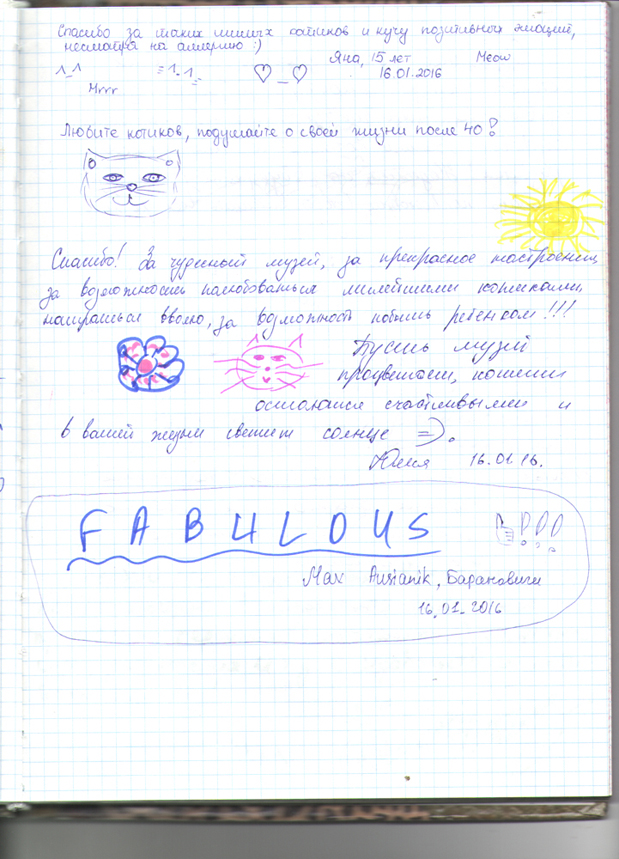 Спасибо за таких милых котиков и кучу позитивных эмоций,
несмотря на аллергию :)
Яна, 15 лет Meow
^_^ =^.^= ♡_♡ 16.01.2016
Mrrr
Любите котиков, подумайте о своей жизни после 40!
Спасибо! За чудесный музей, за прекрасное настроение,
за возможность полюбоваться милейшими кошками,
наиграться вволю, за возможность побыть ребенком!!!
Пусть музей
процветает, кошки
остаются счастливыми и
в вашей жизни светит солнце =).
Юлия 16.01.16.
FABULOUS !!!
Max Ausianik, Барановичи
16.01.2016